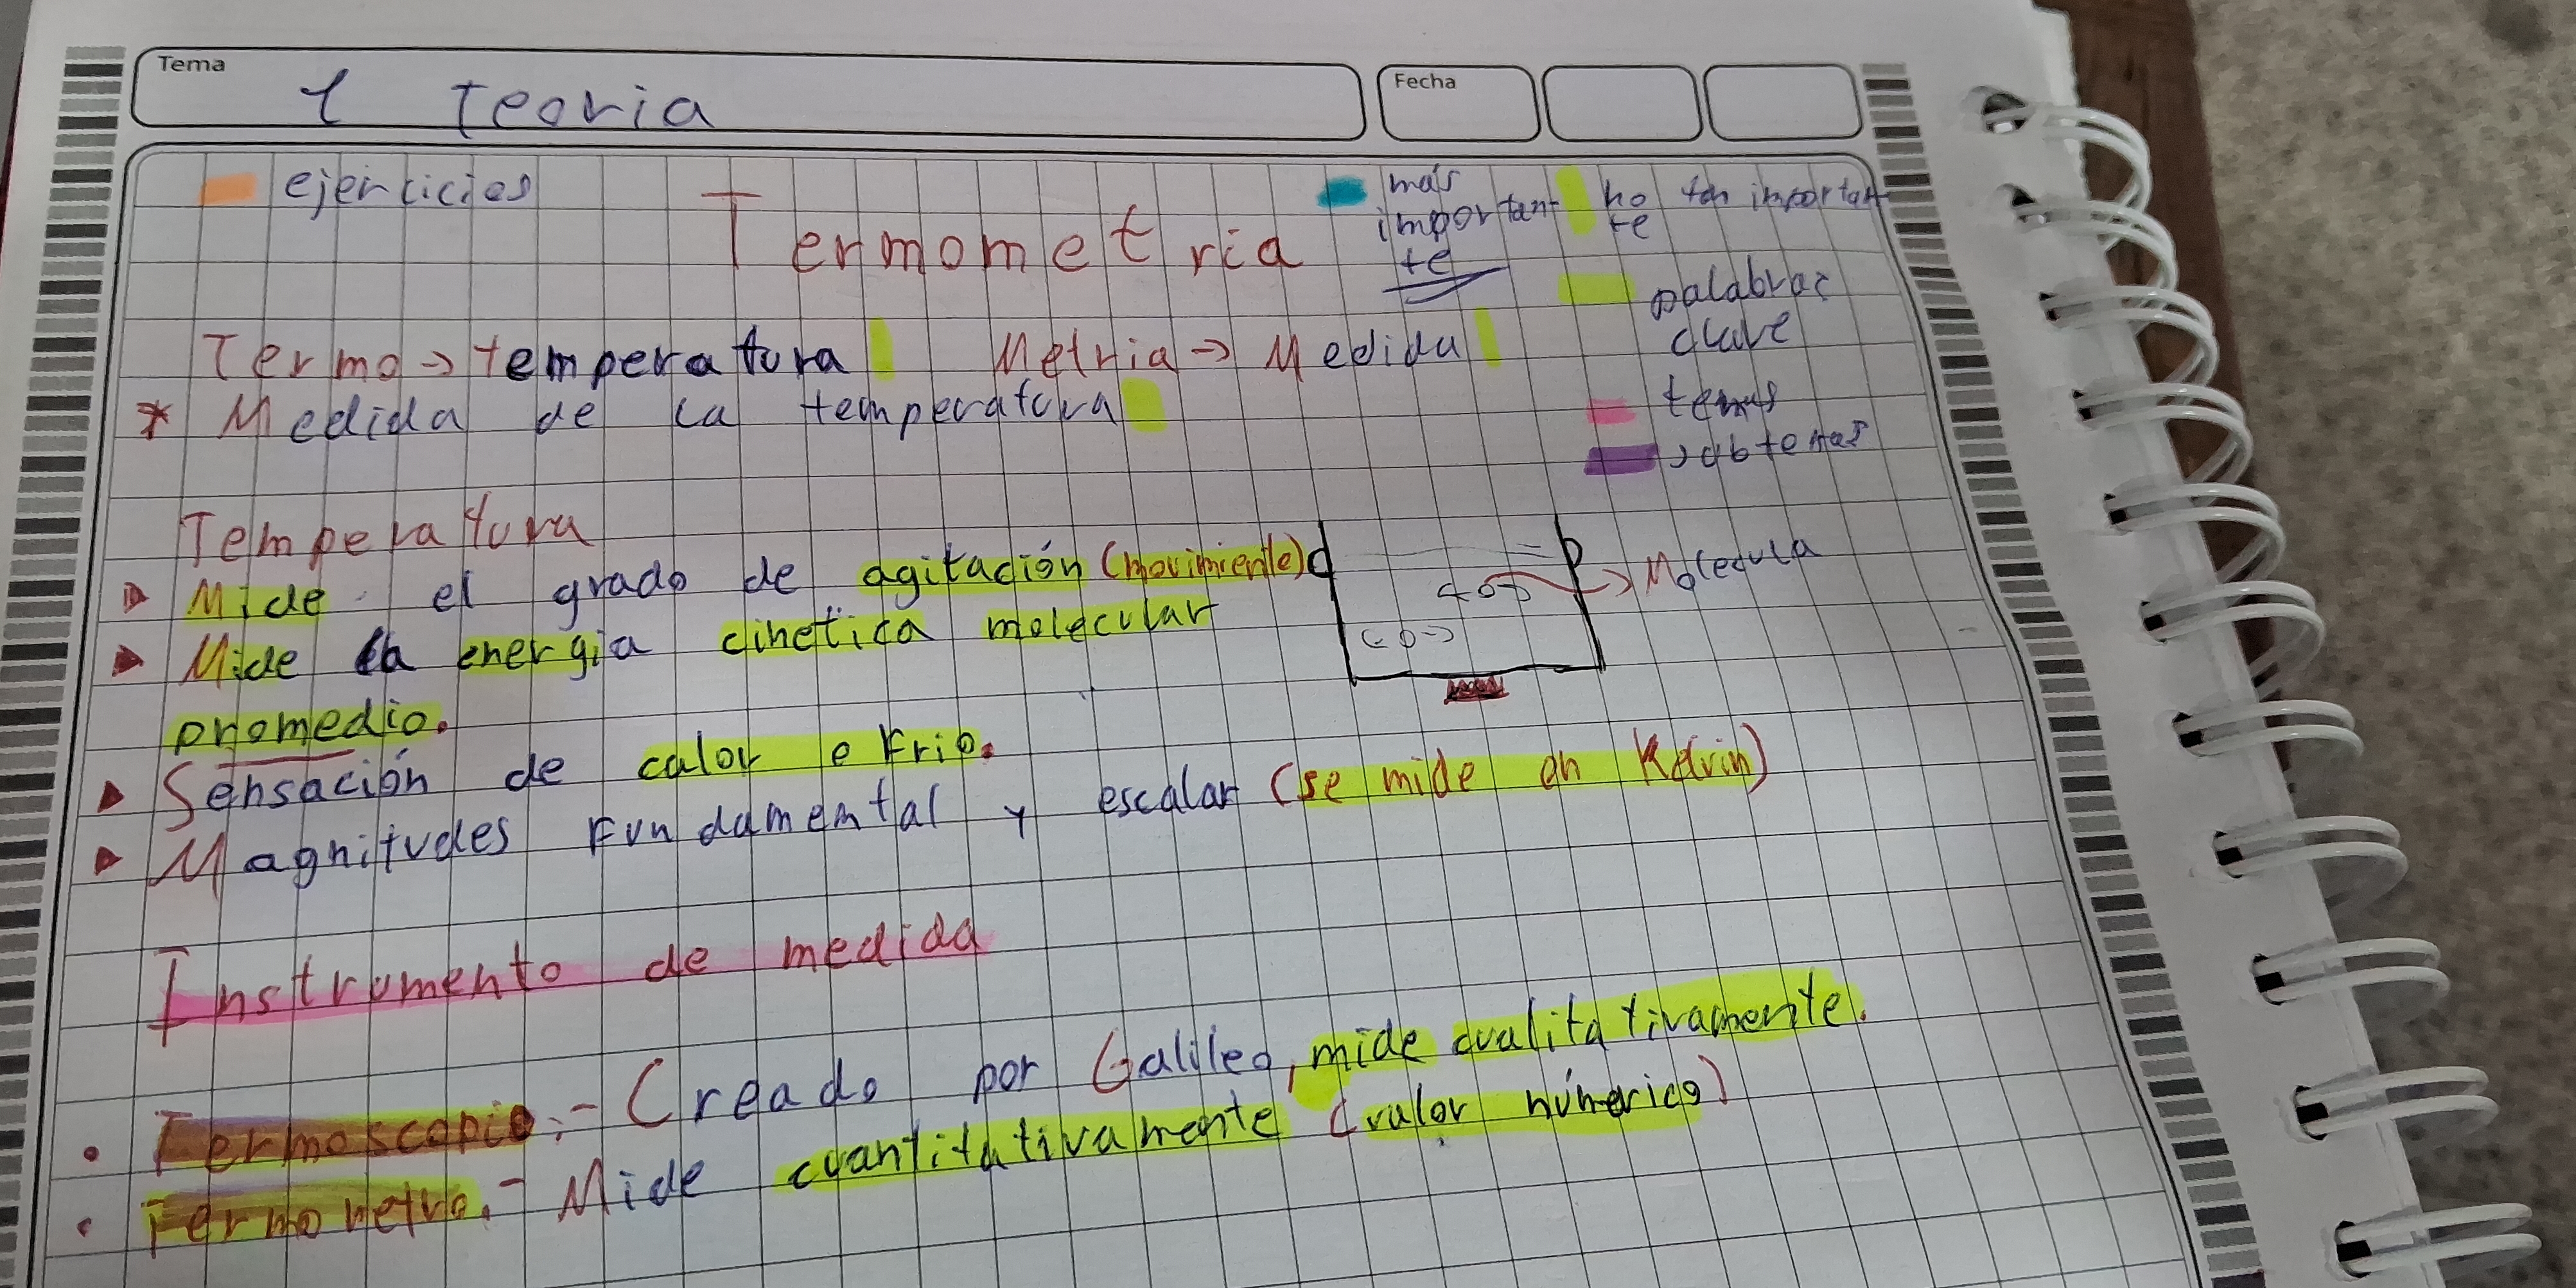 Tema
1 Teoria
Fecha
ejercicios
Termometria
más
importan
te
no tan importan
te
palabras
clave
temas
subtemas
Termo → temperatura Metria → Medida
* Medida de la temperatura
Temperatura
Mide el grado de agitación (movimiento)
Mide la energia cinetica molecular
promedio.
Molecula
Sensación de calor o Frio.
Magnitudes Fundamental y escalar (se mide en Kelvin)
Instrumento de medida
• Termoscopio:- Creado por Galileo, mide cualitativamente.
• Termometro.- Mide cuantitativamente (valor númerico)